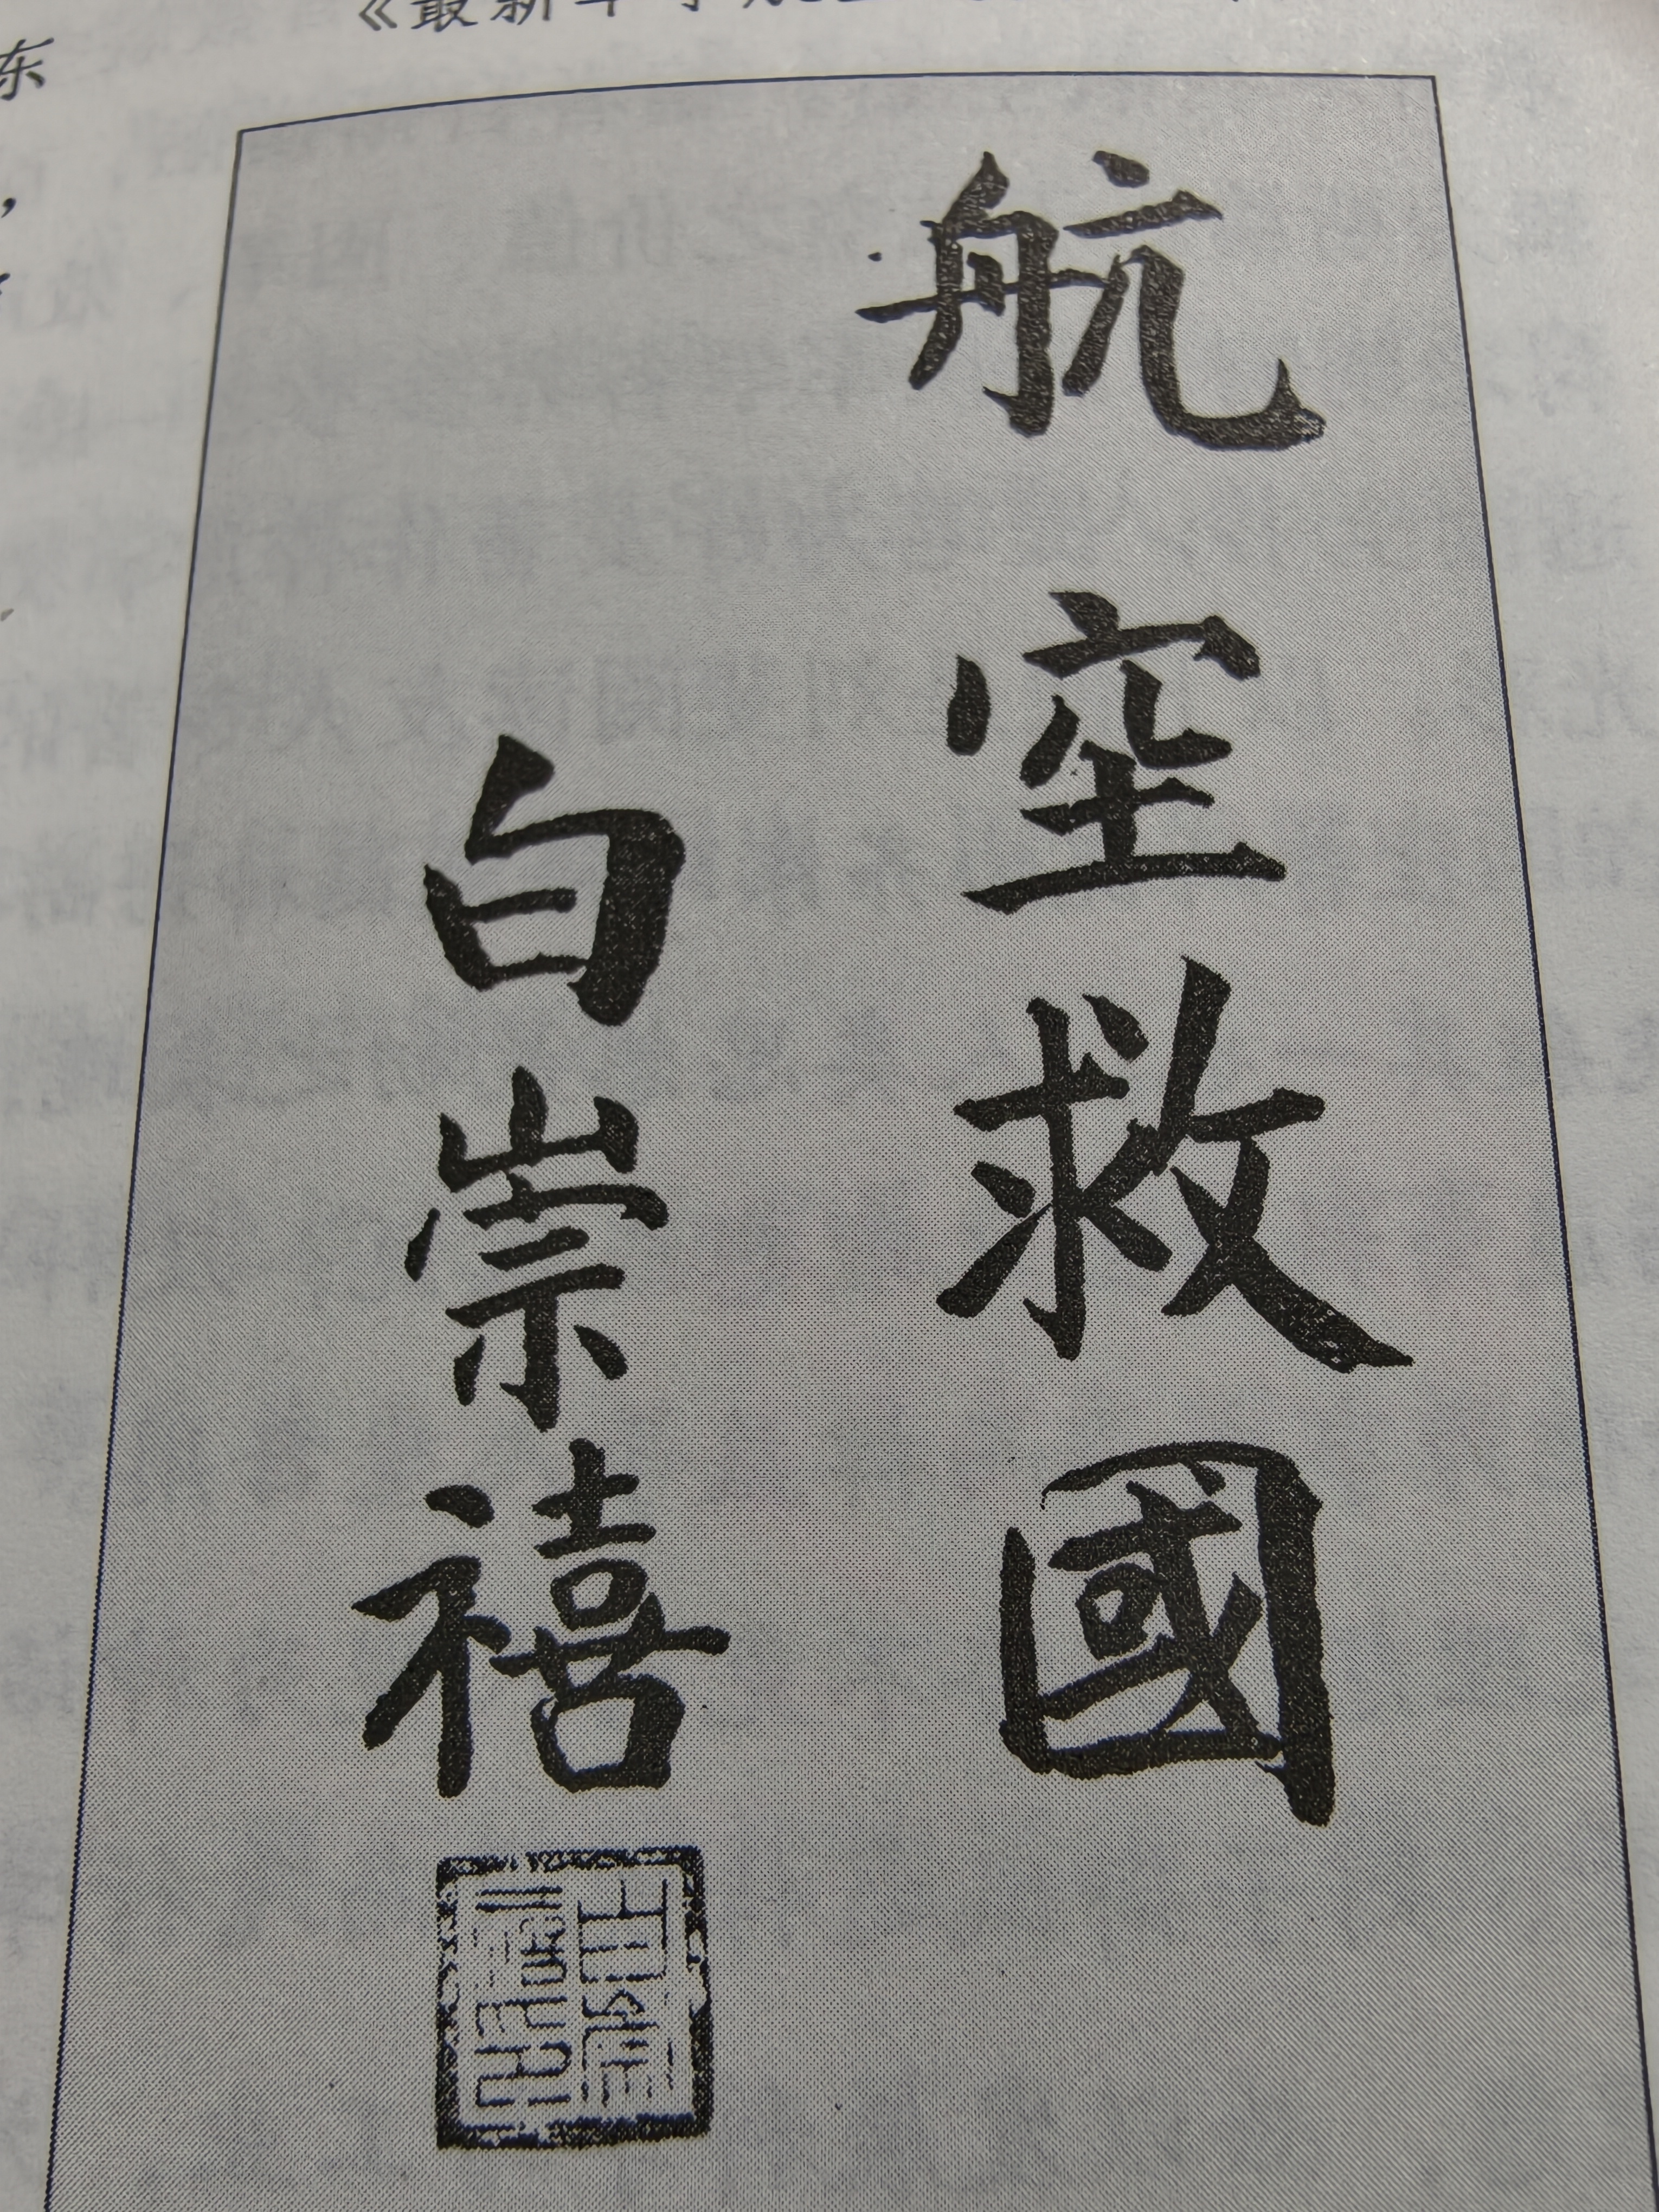 《最新
东
航空救國
白崇禧